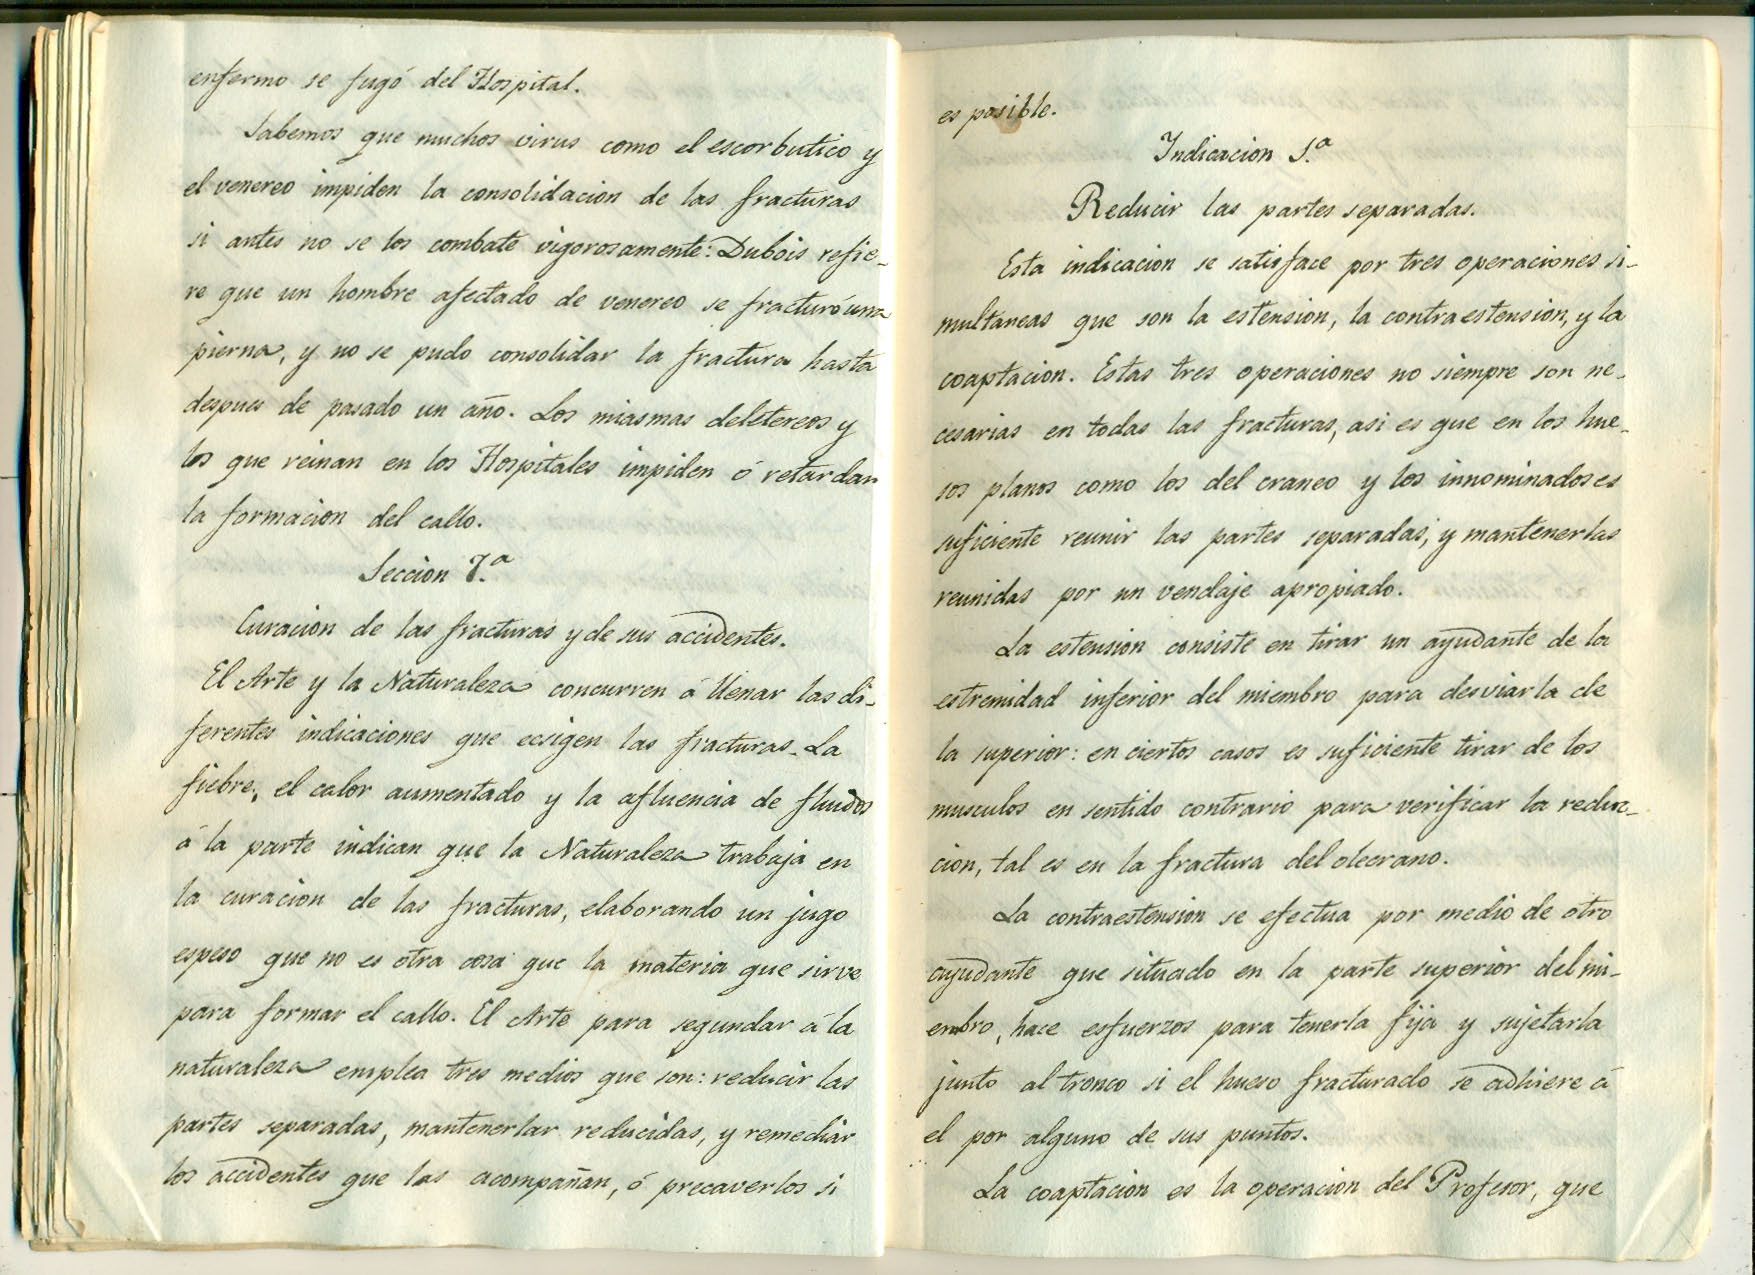 enfermo se fugó del Hospital.
Sabemos que muchos virus como el escorbutico y
el venereo impiden la consolidacion de las fracturas
si antes no se los combate vigorosamente: Dubois refie-
re que un hombre afectado de venereo se fracturó una
pierna, y no se pudo consolidar la fractura hasta
despues de pasado un año. Los miasmas deletereos y
los que reinan en los Hospitales impiden ó retardan
la formacion del callo.
Seccion 7.ª
Curacion de las fracturas y de sus accidentes.
El Arte y la Naturaleza concurren á llenar las di-
ferentes indicaciones que ecsigen las fracturas. La
fiebre, el calor aumentado y la afluencia de fluidos
á la parte indican que la Naturaleza trabaja en
la curacion de las fracturas, elaborando un jugo
espeso que no es otra cosa que la materia que sirve
para formar el callo. El Arte para segundar á la
naturaleza emplea tres medios que son: reducir las
partes separadas, mantenerlas reducidas, y remediar
los accidentes que las acompañan, ó precaverlos si
es posible.
Indicacion 1.ª
Reducir las partes separadas.
Esta indicacion se satisface por tres operaciones si-
multaneas que son la estension, la contraestension, y la
coaptacion. Estas tres operaciones no siempre son ne-
cesarias en todas las fracturas, asi es que en los hue-
sos planos como los del craneo y los innominados es
suficiente reunir las partes separadas, y mantenerlas
reunidas por un vendaje apropiado.
La estension consiste en tirar un ayudante de la
estremidad inferior del miembro para desviarla de
la superior: en ciertos casos es suficiente tirar de los
musculos en sentido contrario para verificar la reduc-
cion, tal es en la fractura del olecrano.
La contraestension se efectua por medio de otro
ayudante que situado en la parte superior del mi-
embro, hace esfuerzos para tenerla fija y sujetarla
junto al tronco si el hueso fracturado se adhiere á
el por alguno de sus puntos.
La coaptacion es la operacion del Profesor, que